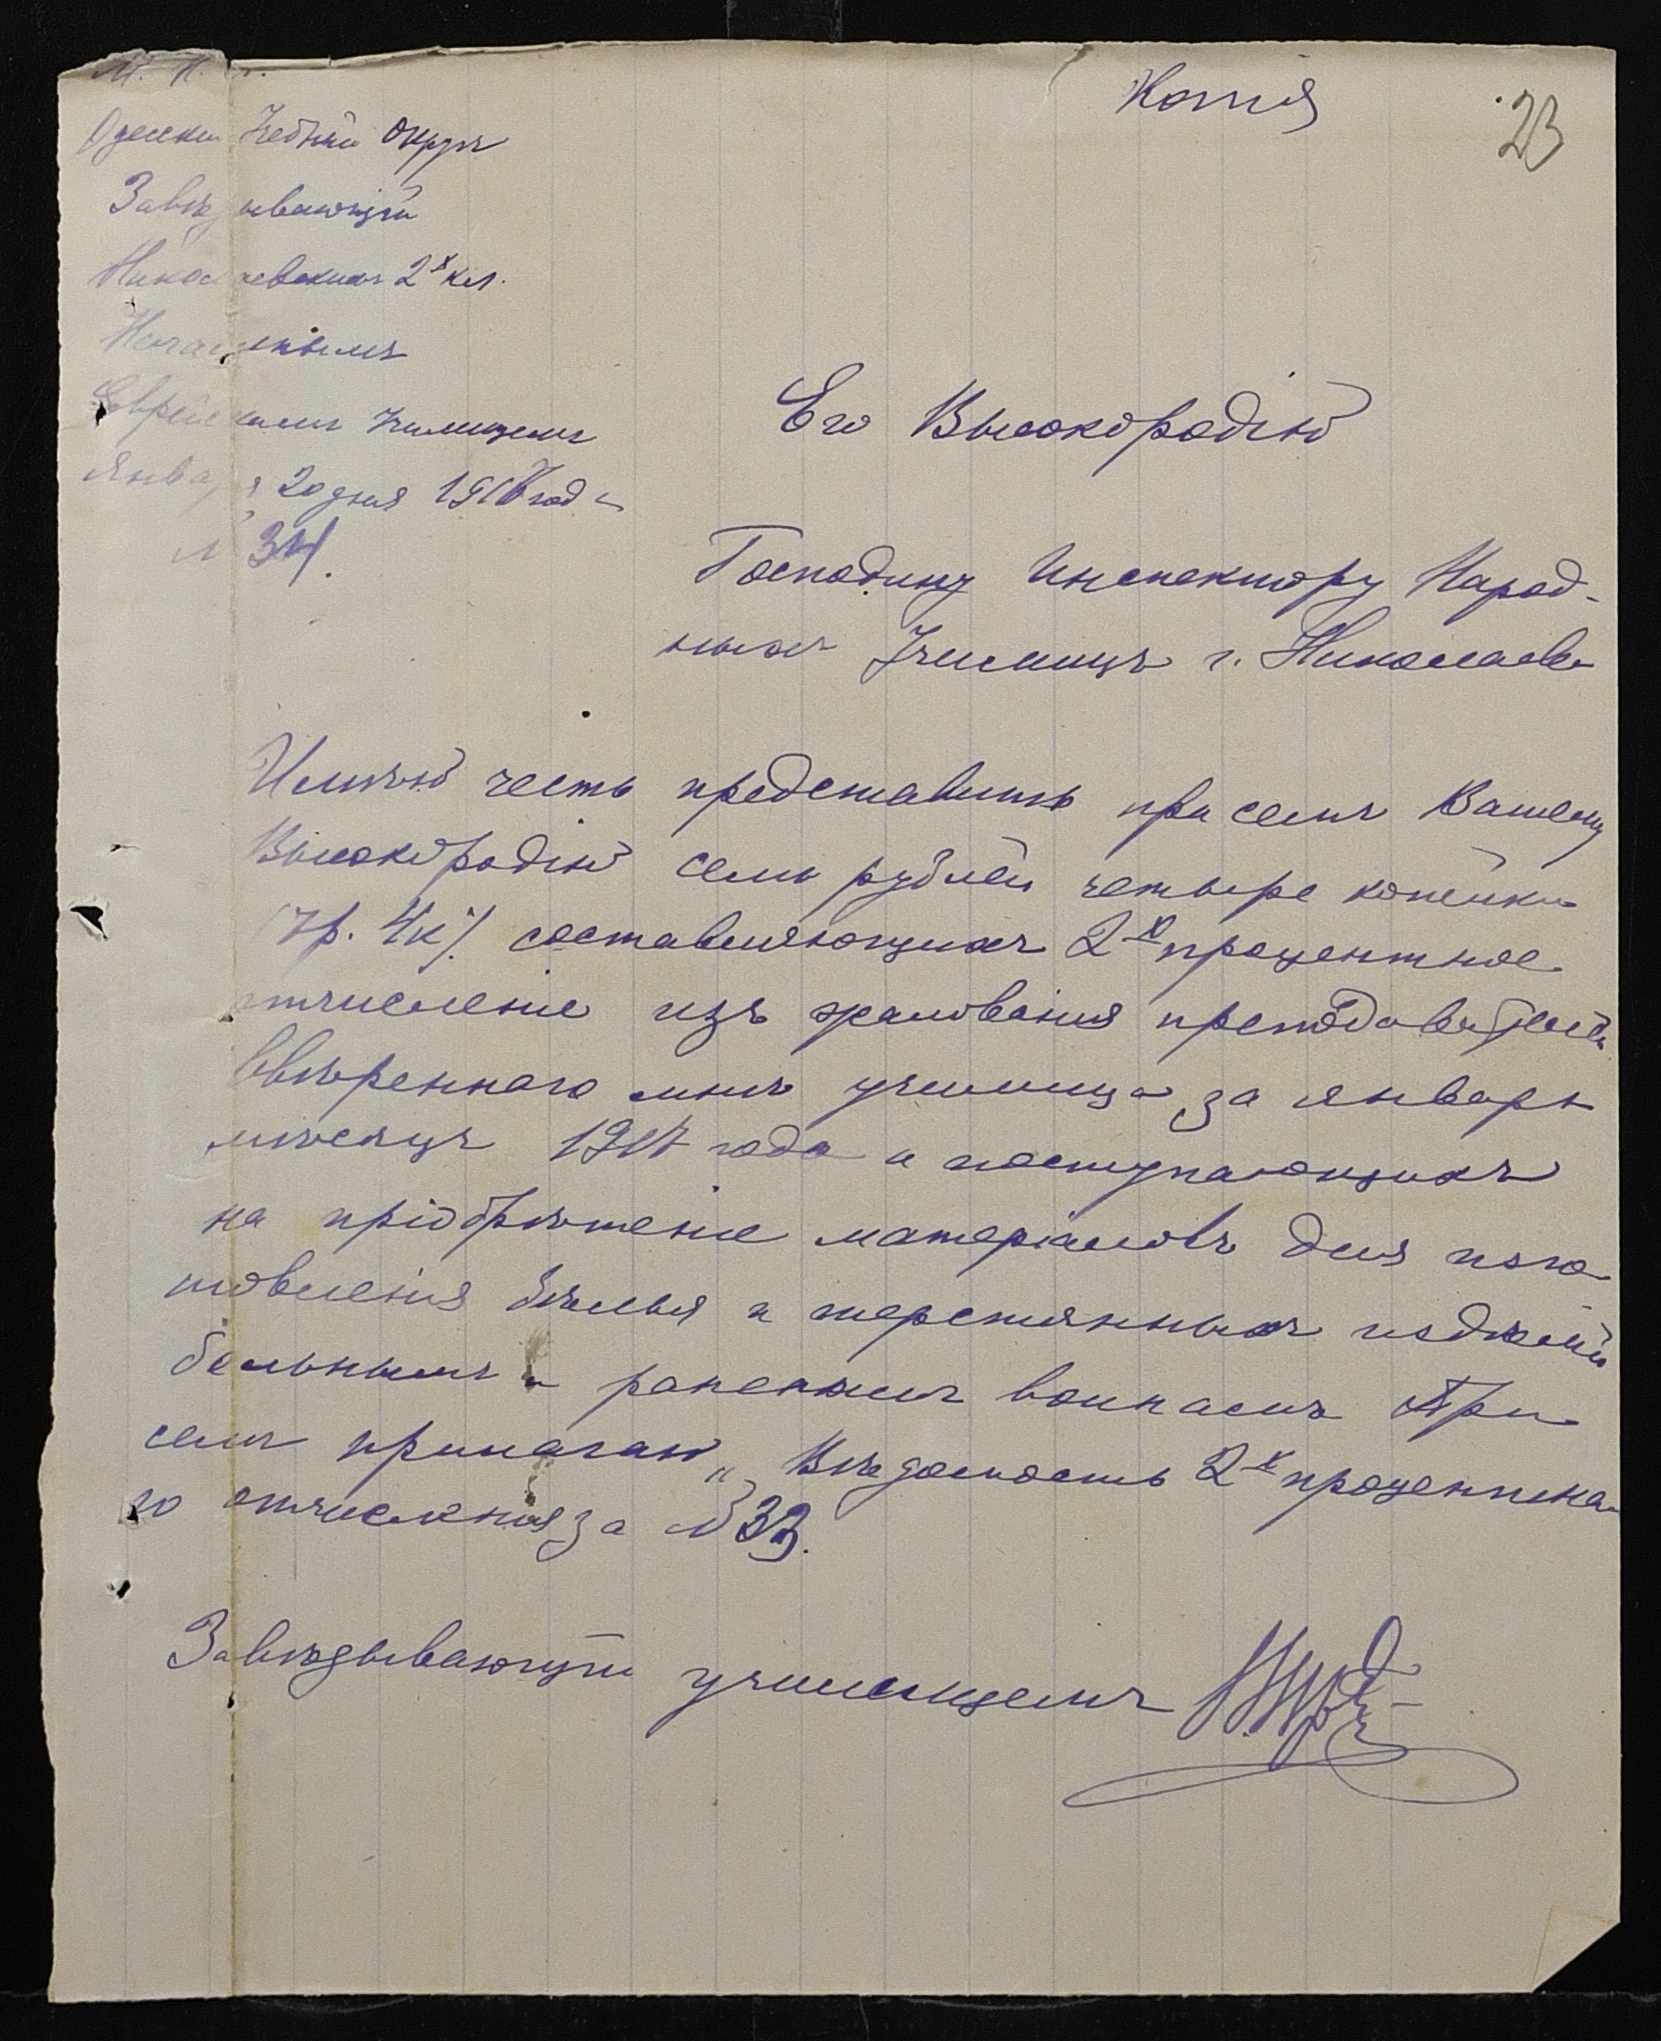 М. Н. П.
Копія
23
Одесскій Учебный Округъ
Завѣдывающій
Николаевскимъ 2х кл.
Начальнымъ
Еврейскимъ Училищемъ
Января 20 дня 1917 года
№ 34.
Его Высокородію
Господину Инспектору Народ-
ныхъ Училищъ г. Николаева
Имѣю честь представить при семъ Вашему
Высокородію семь рублей четыре копейки
(7р. 4к). составляющихъ 2х процентное
отчисленіе изъ жалованія преподавателей
ввѣреннаго мнѣ училища за январь
мѣсяцъ 1917 года и поступающихъ
на пріобрѣтеніе матеріаловъ для изго
товленія бѣлья и шерстянныхъ издѣлій
больнымъ и раненымъ воинамъ При
семъ прилагаю „Вѣдомость 2х процентна
го отчисленія за № 33.
Завѣдывающій училищемъ